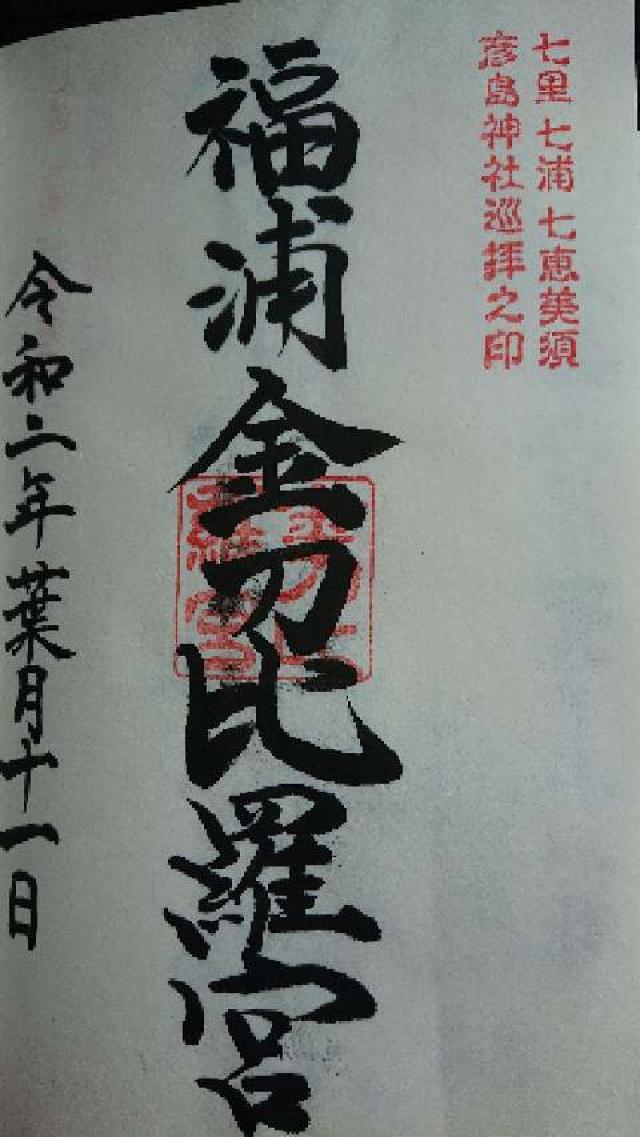 七里七浦七恵美須
彦島神社巡拝之印
福浦金刀比羅宮
令和二年葉月十一日